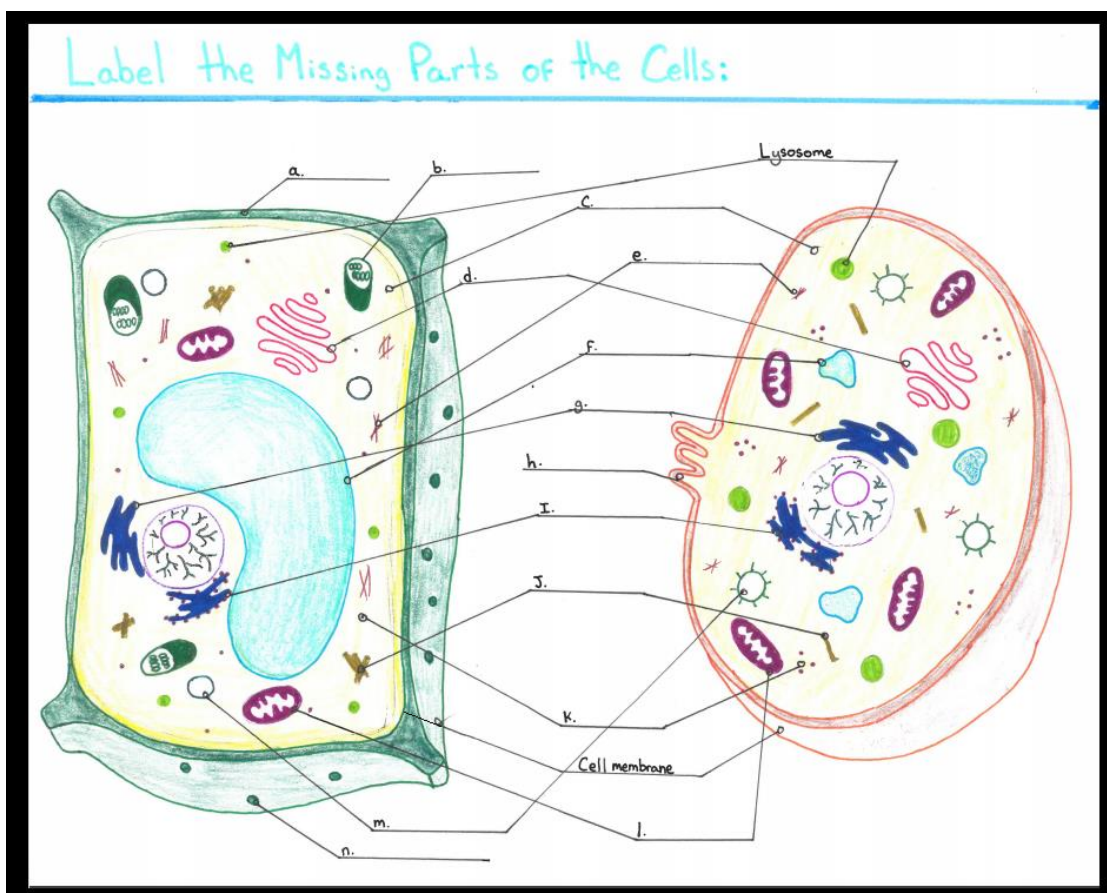 Label the Missing Parts of the Cells:
Lysosome
a.
b.
c.
e.
d.
f.
g.
h.
I.
J.
k.
Cell membrane
m.
l.
n.